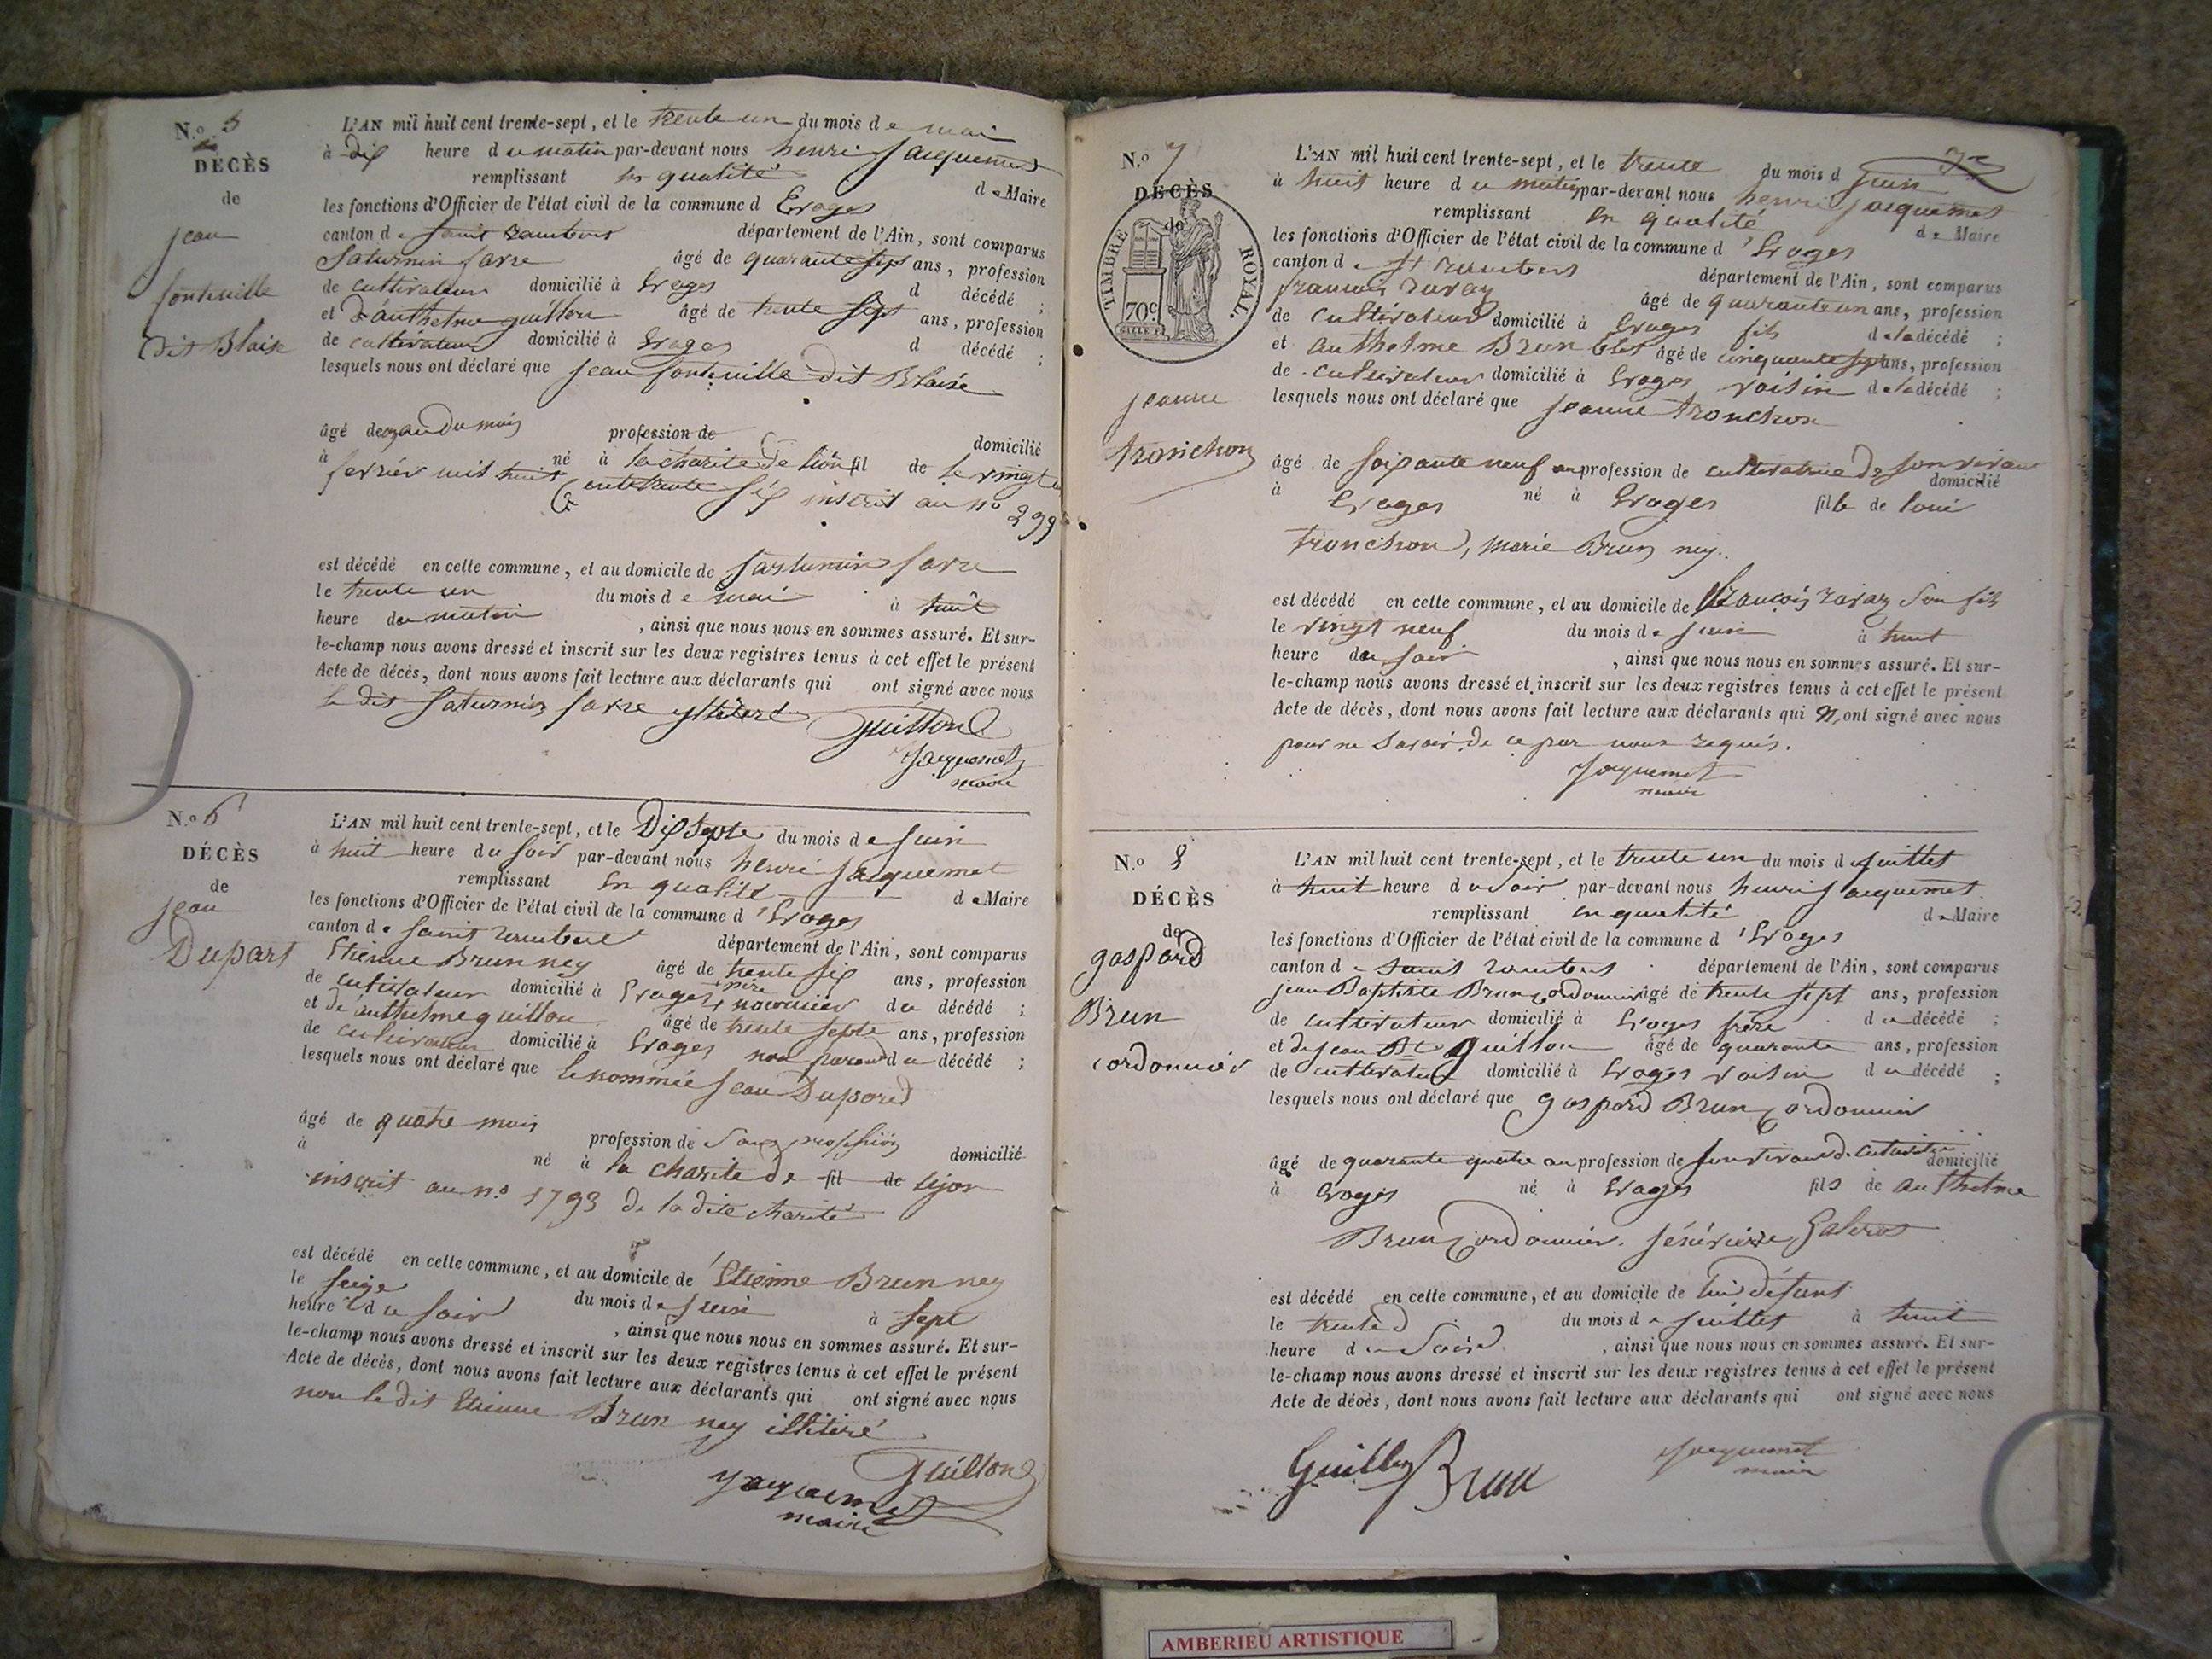 N.o 5
DÉCÈS
de
jean
fontenille
dit Blaise
L'AN mil huit cent trente-sept, et le trente un du mois de mai
à dix heure du matin par-devant nous henri jacquemet
remplissant en qualité de Maire
les fonctions d'Officier de l'état civil de la commune d Evoges
canton de saint rambert département de l'Ain, sont comparus
Saturnin favre âgé de quarante sept ans, profession
de cultivateur domicilié à Evoges d décédé ;
et d'anthelme guillon âgé de trente sept ans, profession
de cultivateur domicilié à Evoges d décédé ;
lesquels nous ont déclaré que jean fontenille dit Blaise
âgé de mois profession de domicilié
à né à la charité de lion fil de le vingt
fevrier mil huit cent trente six inscrit au no 299
est décédé en cette commune, et au domicile de Sarturnin favre
le trente un du mois de mai à huit
heure du matin , ainsi que nous nous en sommes assuré. Et sur-
le-champ nous avons dressé et inscrit sur les deux registres tenus à cet effet le présent
Acte de décès, dont nous avons fait lecture aux déclarants qui ont signé avec nous
le dit Saturnin favre
Guillon
Jacquemet
maire
N.o 6
DÉCÈS
de
jean
Dupart
L'AN mil huit cent trente-sept, et le Dix septe du mois de juin
à huit heure du soir par-devant nous henri jacquemet
remplissant en qualité de Maire
les fonctions d'Officier de l'état civil de la commune d'Evoges
canton de saint rambert département de l'Ain, sont comparus
Etienne Brun ney âgé de trente six ans, profession
de cultivateur domicilié à Evoges, père nourricier du décédé ;
et de anthelme guillon âgé de trente septe ans, profession
de cultivateur domicilié à Evoges non parend du décédé ;
lesquels nous ont déclaré que le nommée jean Dupord
âgé de quatre mois profession de sans profession domicilié
à né à la charite de fil de lyon
inscrit au no 1793 de la dite charité
est décédé en cette commune, et au domicile de Etienne Brun ney
le seize du mois de juin à sept
heure du soir , ainsi que nous nous en sommes assuré. Et sur-
le-champ nous avons dressé et inscrit sur les deux registres tenus à cet effet le présent
Acte de décès, dont nous avons fait lecture aux déclarants qui ont signé avec nous
non le dit Etienne Brun ney illitéré
Guillon
Jacquemet
maire
N.o 7
DÉCÈS
de
TIMBRE ROYAL.
70c
jeanne
tronchon
L'AN mil huit cent trente-sept, et le trente du mois d juin
à huit heure du matin par-devant nous henri jacquemet
remplissant en qualité de Maire
les fonctions d'Officier de l'état civil de la commune d'Evoges
canton de St rambert département de l'Ain, sont comparus
françois ravay âgé de quarante un ans, profession
de cultivateur domicilié à Evoges fils de la décédé ;
et anthelme Brun âgé de cinquante sept ans, profession
de cultivateur domicilié à Evoges voisin de la décédé ;
lesquels nous ont déclaré que jeanne tronchon
âgé de soixante neuf an profession de cultivatrice de son vivant domicilié
à Evoges né à Evoges fille de loui
tronchon, marie Brun ney.
est décédé en cette commune, et au domicile de françois ravay son fils
le vingt neuf du mois de juin à huit
heure du soir , ainsi que nous nous en sommes assuré. Et sur-
le-champ nous avons dressé et inscrit sur les deux registres tenus à cet effet le présent
Acte de décès, dont nous avons fait lecture aux déclarants qui N'ont signé avec nous
pour ne savoir de ce par nous requis.
Jacquemet
maire
N.o 8
DÉCÈS
de
gaspard
Brun
cordonnier
L'AN mil huit cent trente-sept, et le trente un du mois de juillet
à huit heure du soir par-devant nous henri jacquemet
remplissant en qualité de Maire
les fonctions d'Officier de l'état civil de la commune d'Evoges
canton de saint rambert département de l'Ain, sont comparus
jean Baptiste Brun cordonnier âgé de trente sept ans, profession
de cultivateur domicilié à Evoges frère du décédé ;
et de jean Bte guillon âgé de quarante ans, profession
de cultivateur domicilié à Evoges voisin du décédé ;
lesquels nous ont déclaré que gaspard Brun cordonnier
âgé de quarante quatre an profession de domicilié
à Evoges né à Evoges fils de anthelme
Brun cordonnier.
est décédé en cette commune, et au domicile de lui défunt
le trente du mois de juillet à huit
heure du soir , ainsi que nous nous en sommes assuré. Et sur-
le-champ nous avons dressé et inscrit sur les deux registres tenus à cet effet le présent
Acte de décès, dont nous avons fait lecture aux déclarants qui ont signé avec nous
Guillon Brun
Jacquemet
maire
AMBERIEU ARTISTIQUE